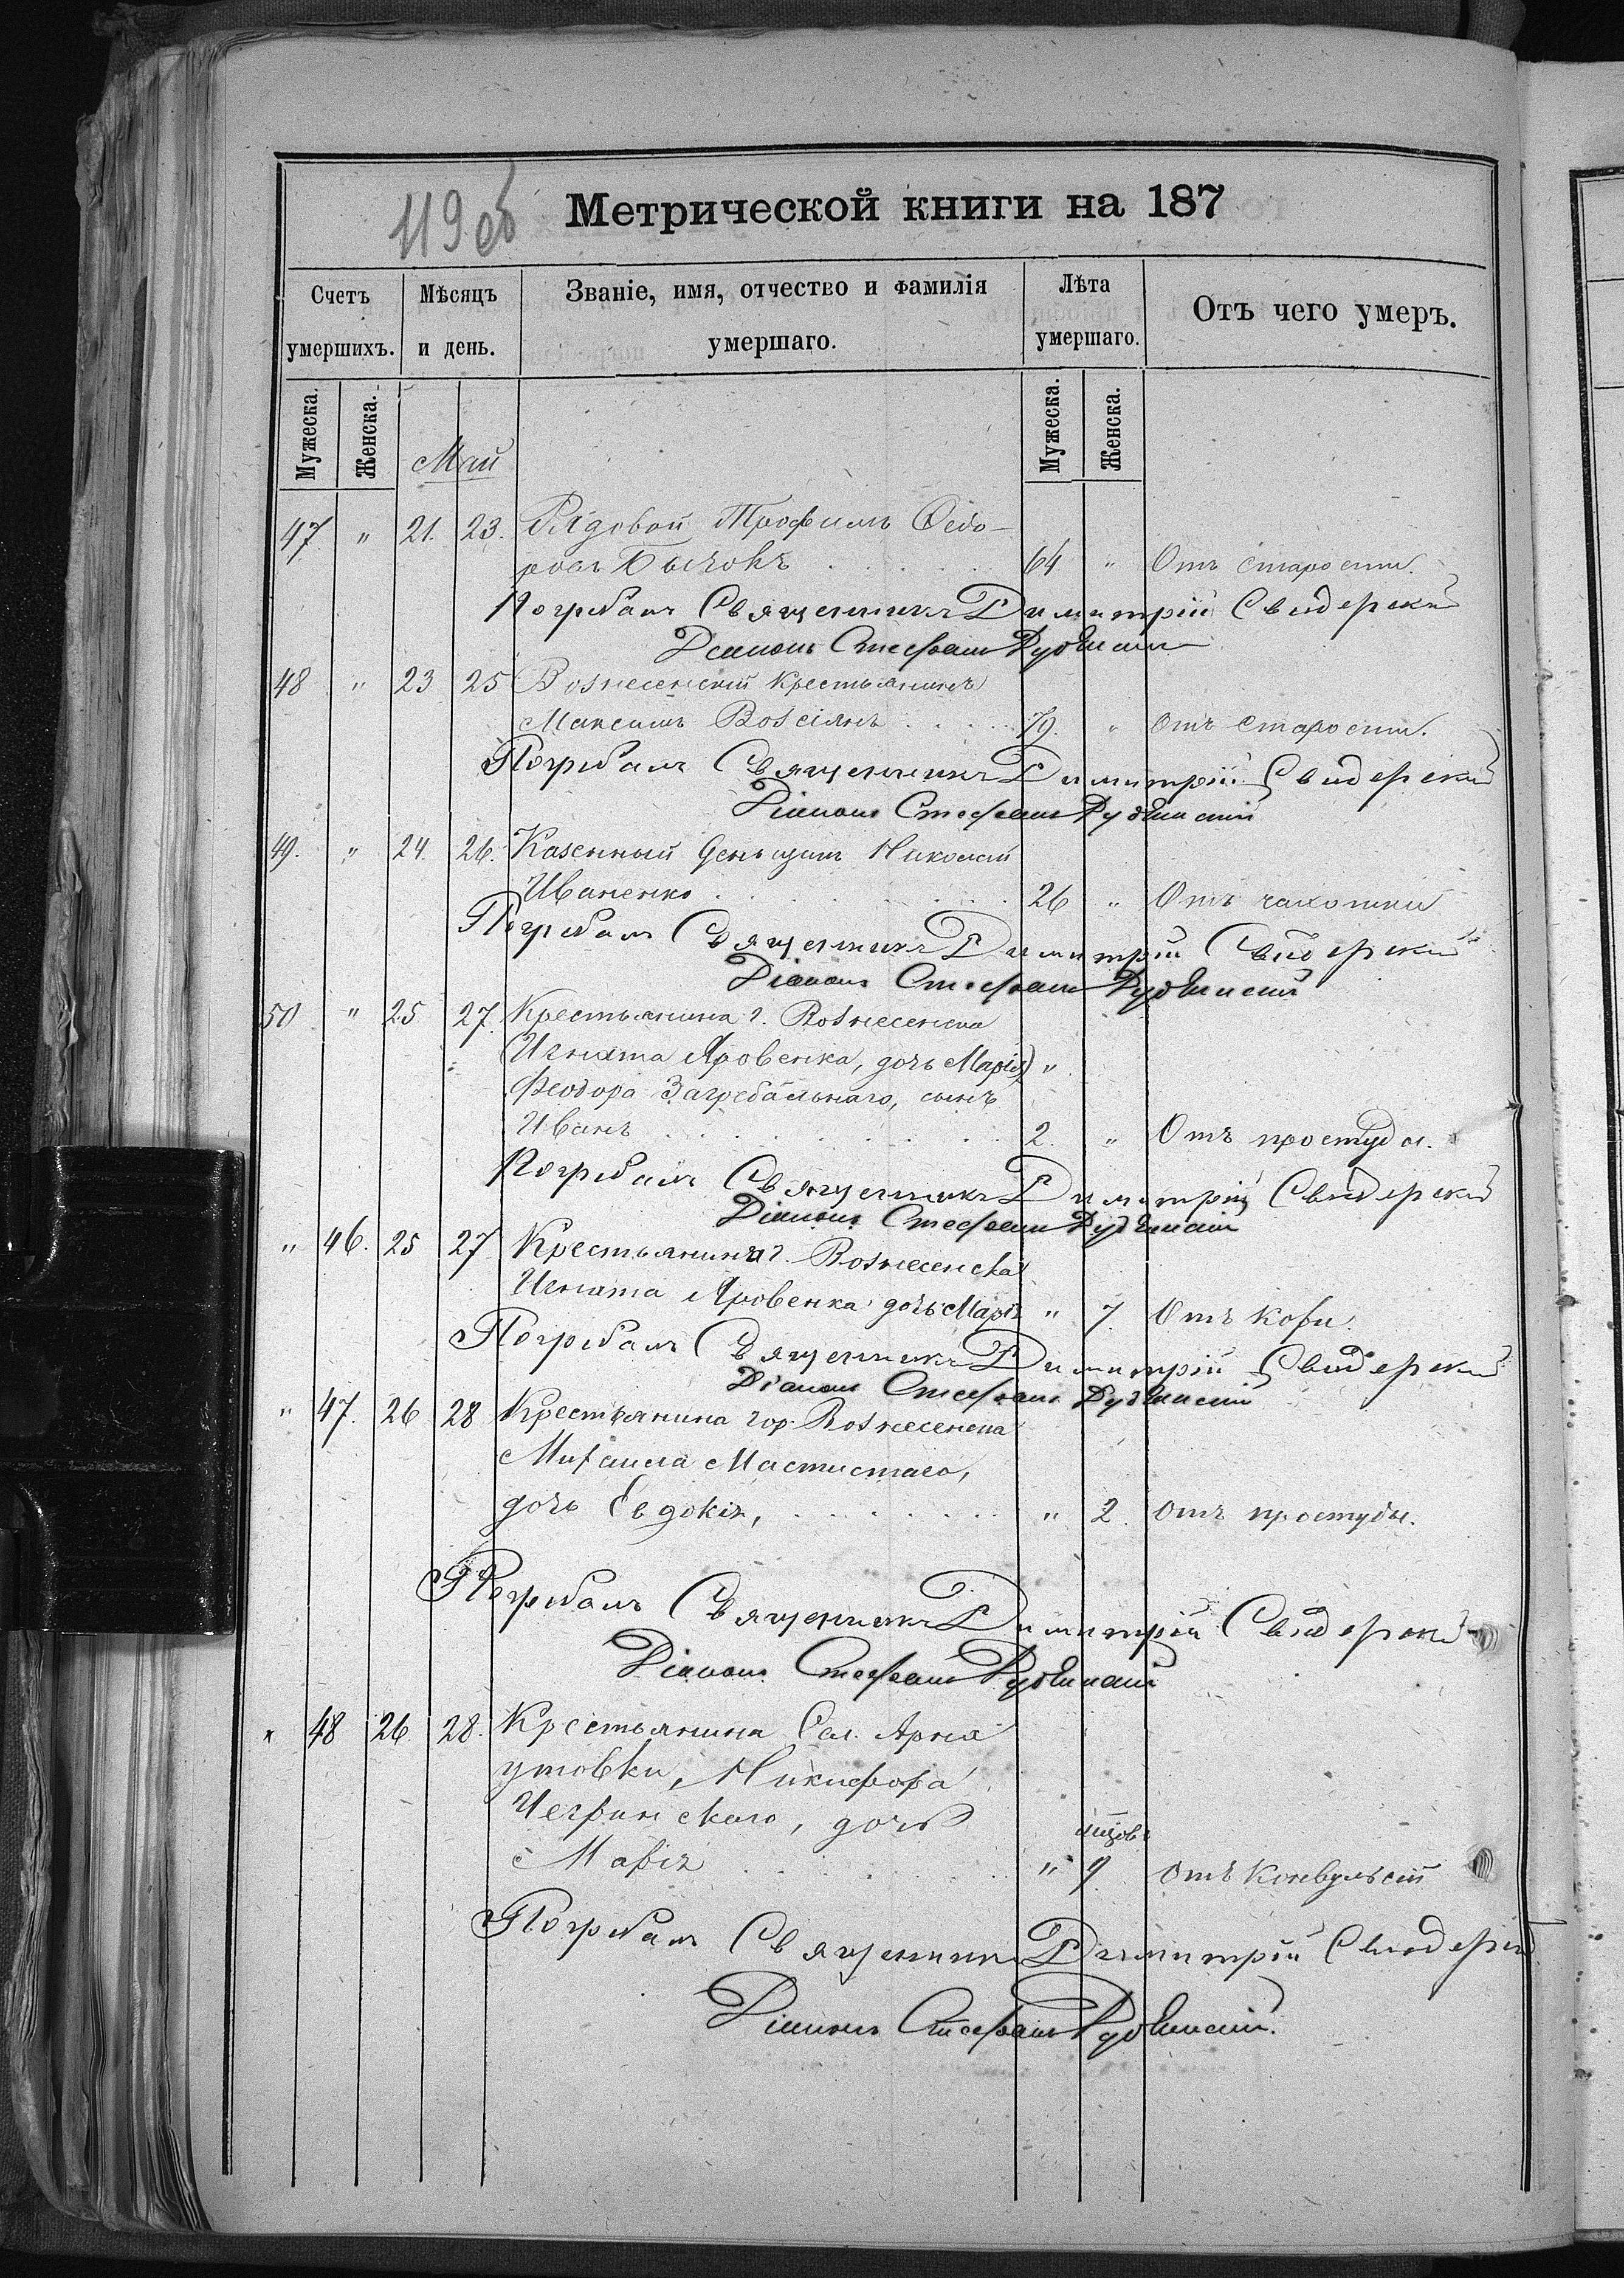 119 об
Метрической книги на 187
Счетъ умершихъ.
Мѣсяцъ и день.
Званіе, имя, отчество и фамилія умершаго.
Лѣта умершаго.
Отъ чего умеръ.
Мужеска. Женска. Мужеска. Женска.
Май
47 " 21. 23. Рядовой Трофимъ Ѳедо-
ровъ Бычокъ . . . . . . 64 " Отъ старости.
Погребалъ Священникъ Димитрій Свидерскій
Діаконъ Стефанъ
48 " 23 25 Вознесенскій крестьянинъ
Максимъ . . . . 79. " Отъ старости.
Погребалъ Священникъ Димитрій Свидерскій
Діаконъ Стефанъ
49. " 24. 26. Казенный деньщикъ Николай
Иваненко . . . . . . . . 26 " Отъ чахотки
Погребалъ Священникъ Димитрій Свидерскій
Діаконъ Стефанъ
50 " 25 27. Крестьянина г. Вознесенска
(Игната Яровенка, дочь Марія) "
Феодора Загребальнаго, сынъ
Иванъ . . . . . . . . . 2. " Отъ простуды.
Погребалъ Священникъ Димитрій Свидерскій
Діаконъ Стефанъ
" 46. 25 27 Крестьянина г. Вознесенска
Игната Яровенка дочь Марія " 7. Отъ кори.
Погребалъ Священникъ Димитрій Свидерскій
Діаконъ Стефанъ
" 47. 26 28 Крестьянина гор. Вознесенска
Михаила
дочь Евдокія, . . . . . . . . " 2. Отъ простуды.
Погребалъ Священникъ Димитрій Свидерскій
Діаконъ Стефанъ
48 26 28. Крестьянина Сел. Арна
утовки, Никифора
Чегринскаго, дочь
Марія . . . . . . . . " 9. Отъ конвульсій
Погребалъ Священникъ Димитрій Свидерскій
Діаконъ Стефанъ